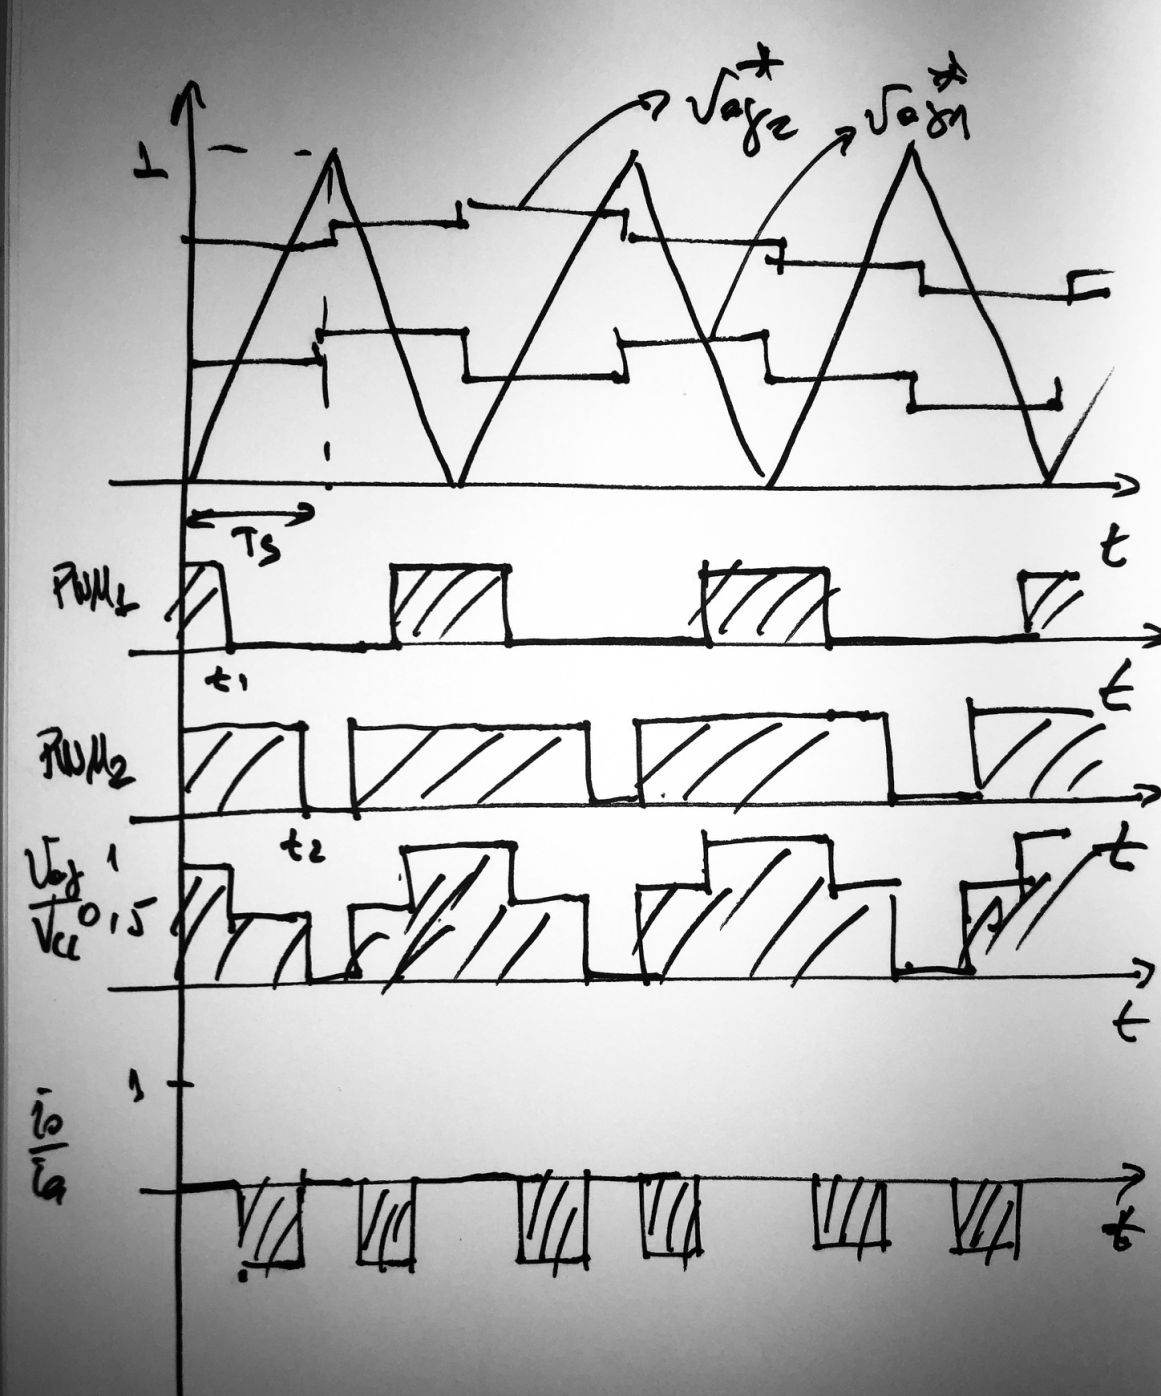 Vag2*
Vag1*
1
Ts
t
PWM1
t1
t
PWM2
t2
t
Vag/Vcc
1
0,5
t
1
io/ia
t